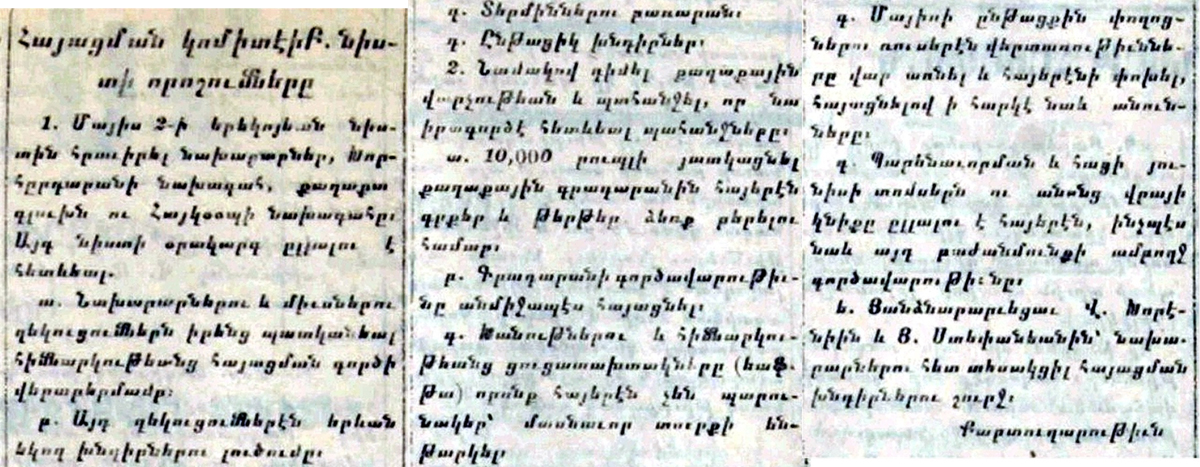 Հայացման կոմիտէի Բ. նիս-
տի որոշումները
1. Մայիս 2-ի երեկոյեան նիս-
տին հրաւիրել նախարարներ, Խոր-
հըրդարանի նախագահ, քաղաքա
գլուխն ու Հայկօօպի նախագահը։
Այդ նիստի օրակարգ ըլլալու է
հետեւեալ.
ա. Նախարարներու և միւսներու
զեկուցումներն իրենց պատկանեալ
հիմնարկութեանց հայացման գործի
վերաբերմամբ։
բ. Այդ զեկուցումներէն երեւան
եկող խնդիրներու լուծումը։
գ. Տերմիններու բառարան։
դ. Ընթացիկ խնդիրներ։
2. Նամակով դիմել քաղաքային
վարչութեան և պահանջել, որ նա
իրագործէ հետեւեալ պահանջները։
ա. 10,000 րուպլի յատկացնել
քաղաքային գրադարանին հայերէն
գրքեր և թերթեր ձեռք բերելու
համար։
բ. Գրադարանի գործավարութիւ-
նը անմիջապէս հայացնել։
գ. Խանութներու և հիմնարկու-
թեանց ցուցատախտակները
որոնք հայերէն չեն պարու-
նակեր՝ մասնաւոր տուրքի են-
թարկել։
գ. Մայիսի ընթացքին փողոց-
ներու ռուսերէն վերտառութիւննե-
րը վար առնել և հայերէնի փոխել,
հայացնելով ի հարկէ նաև անուն-
ները։
դ. Պարենաւորման և հացի յու-
նիսի տոմսերն ու անոնց վրայի
կնիքը ըլլալու է հայերէն, ինչպէս
նաև այդ բաժանմունքի ամբողջ
գործավարութիւնը։
ե. Յանձնարարւեցաւ Վ. Խորէ-
նիին և Յ. Ստեփանեանին՝ նախա-
րարներու հետ տեսակցիլ հայացման
խնդիրներու շուրջ։
Քարտուղարութիւն